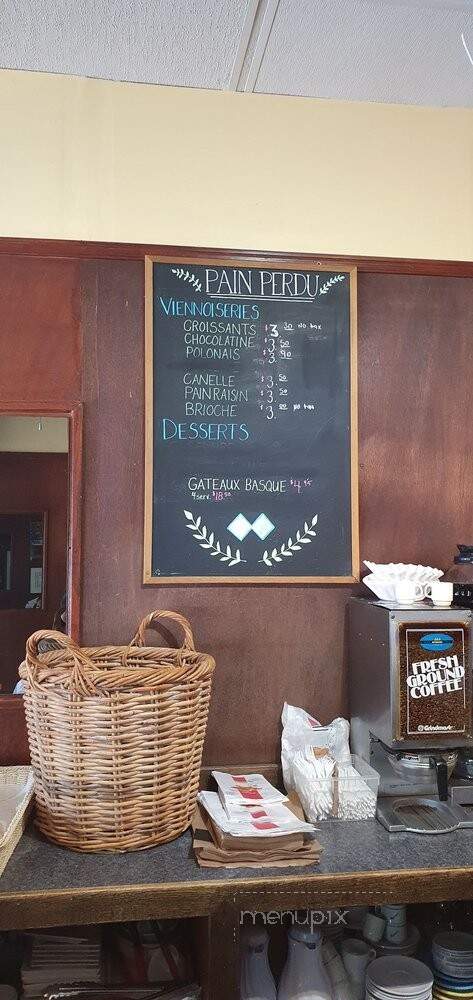 PAIN PERDU
VIENNOISERIES
CROISSANTS $3.30 NO tax
CHOCOLATINE $3.50
POLONAIS $3.90
CANELLE $3.50
PAIN RAISIN $3.50
BRIOCHE NO tax
DESSERTS
GATEAUX BASQUE $4.95
4 serv. $18.50
FRESH
GROUND
COFFEE
Grindmaster
menupix